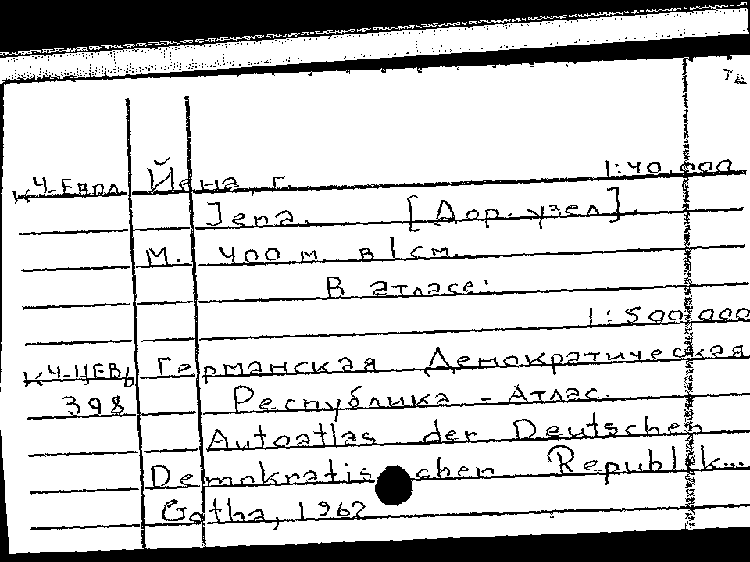 К4-Европ Йена, г. 1:40.000
Jena. [Дор. узел].
М. 400 м. в 1 см.
В атласе:
1:500 000
К4-ЦЕВр Германская Демократическая
398 Республика - Атлас.
Autoatlas der Deutschen
Demokratischen Republik...
Gotha, 1962